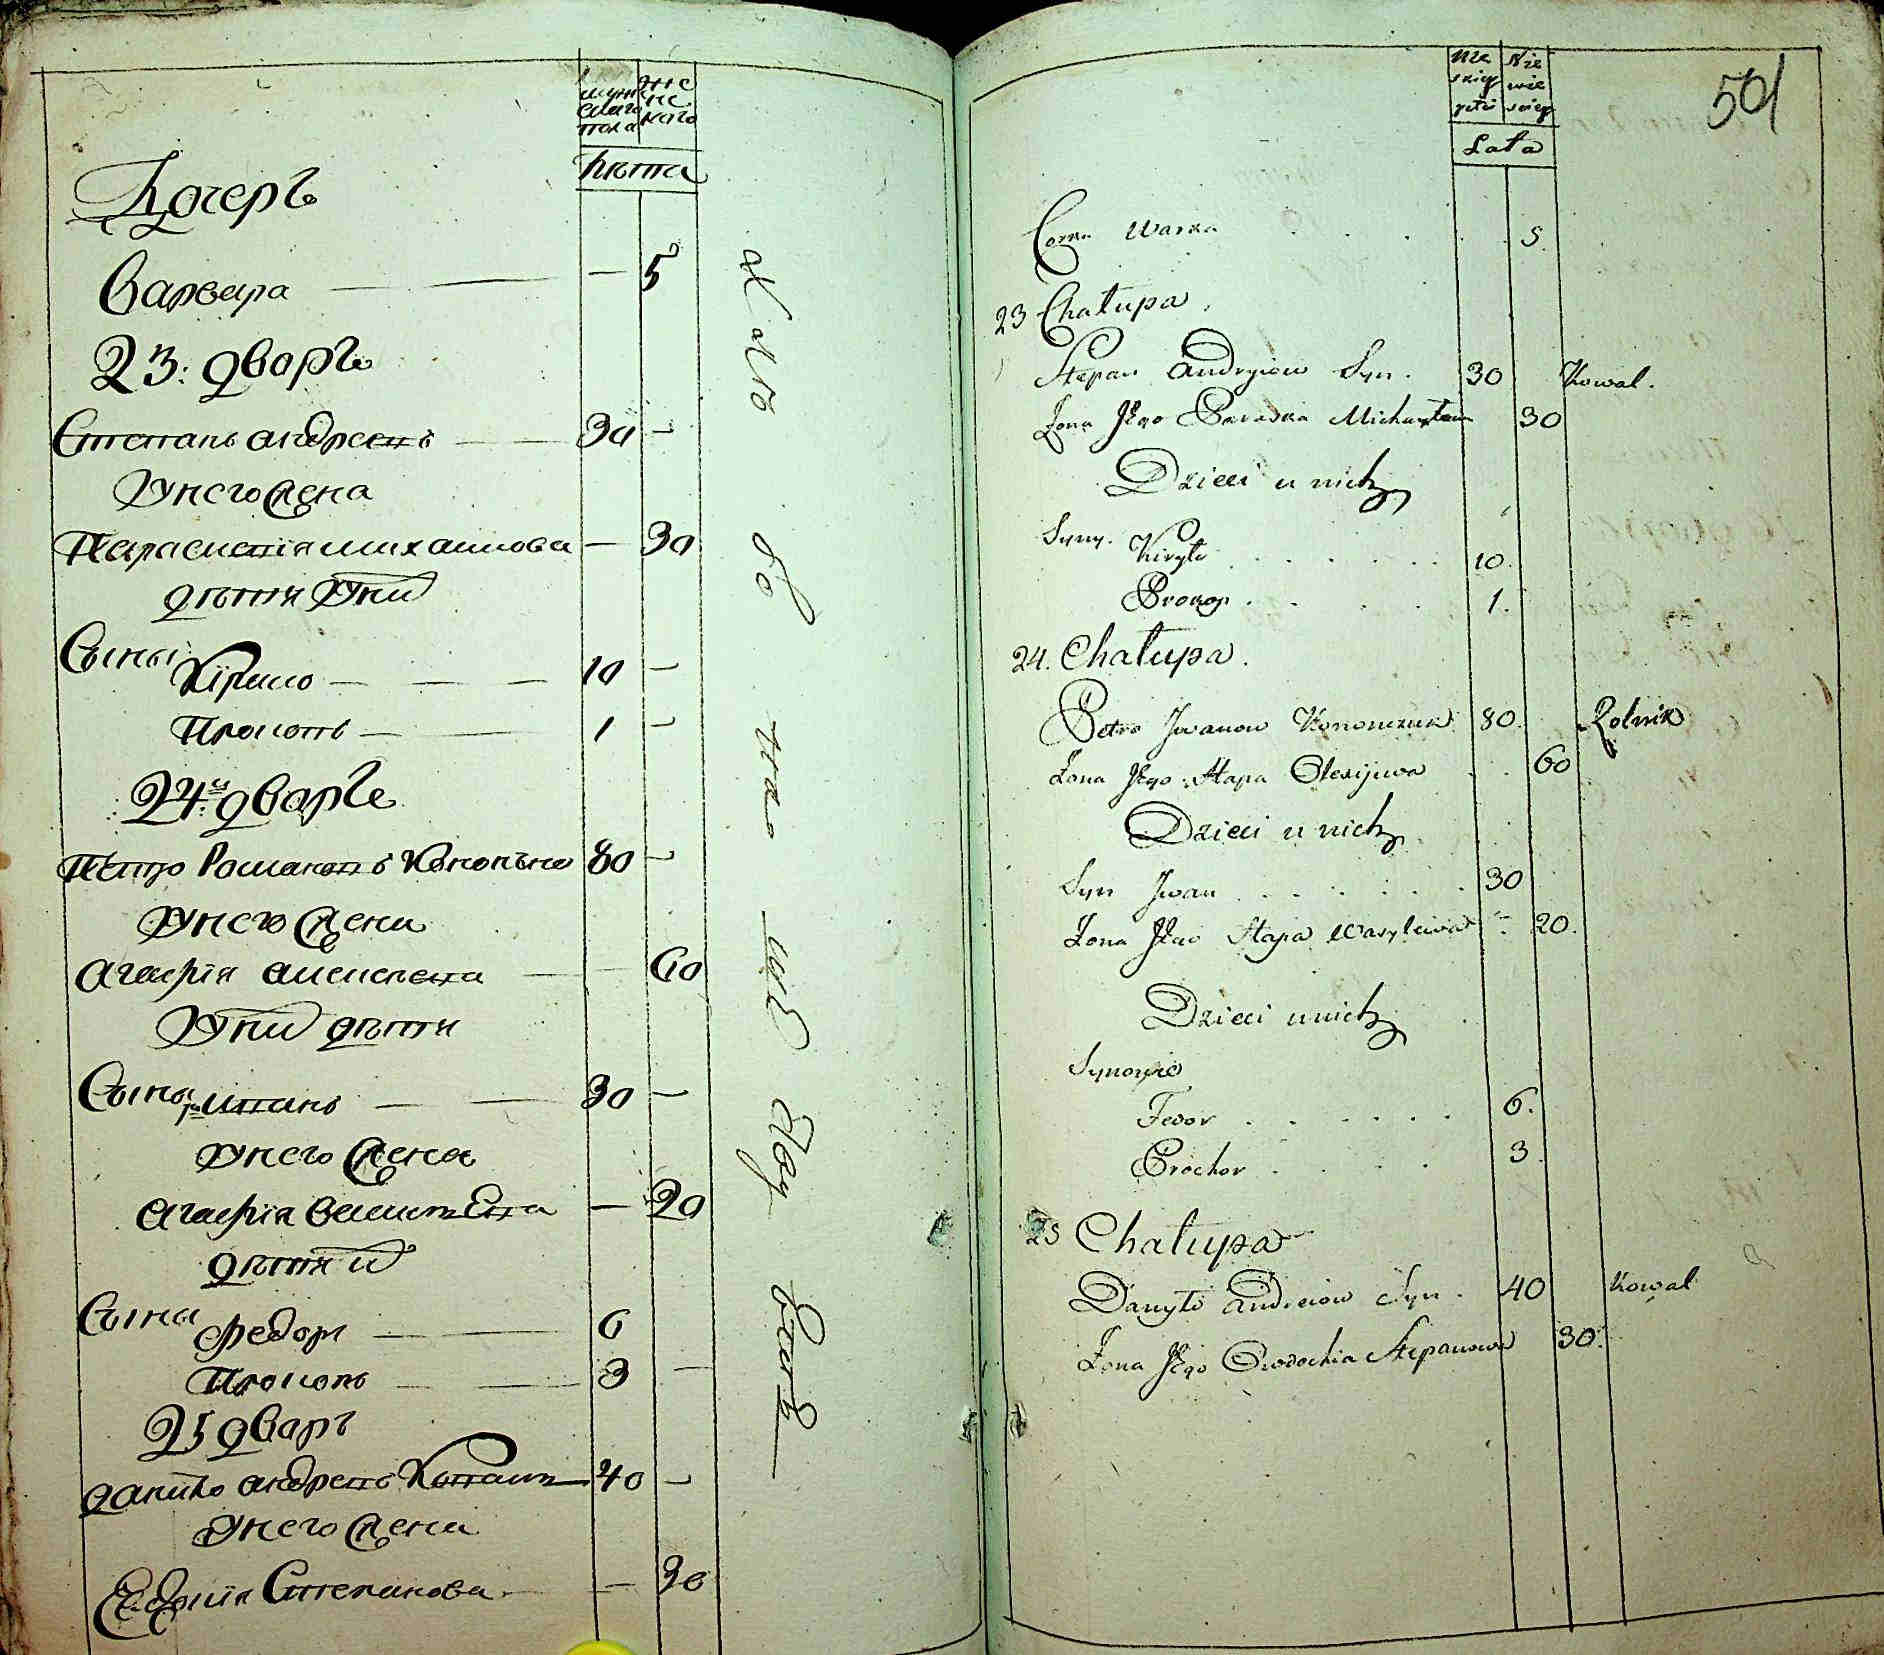 мужескаго пола
женскаго
лѣта
Дочерь
Варвара — — 5
23: дворъ
Степанъ андреевъ — 30 —
У него жена
Парасковия михаилова — 30
дѣти У ни
Сыны
Кирило — 10 —
Прокопъ — 1 —
24 дворъ
Петро Романовъ Кононъ 80 —
У него жена
Агафия алексѣева — 60
У ни дѣти
Сынъ иванъ — 30 —
У него жена
Агафия василъева — 20
дѣти и
Сыны
Федоръ — 6
Прокопъ — 3 —
25 дворъ
данило андреевъ Коваль — 40 —
У него жена
Евдокия Степанова — 30
501
Męskiey płci
Niewieściey
Lata
Corka Warka . . . . 5.
23 Chałupa.
Stepan Andryiow Syn. 30 Kowal.
Żona Jego Paraska Michayłowa 30
Dzieci u nich
Syny. Kiryło . . . . . 10.
Prokop . . . . 1.
24. Chałupa.
Petro Jwanow Kononczuk 80. Rolnik
Żona Jego Hapa Olexijowa . . 60
Dzieci u nich
Syn Jwan . . . . . 30
Żona Jego Hapa Wasylowa 20.
Dzieci u nich
Synowie
Fedor . . . . . 6.
Prochor . . . . 3.
25 Chałupa
Danyło Andreiow Syn. 40 Kowal
Żona Jego Owdochia Stepanowa 30.